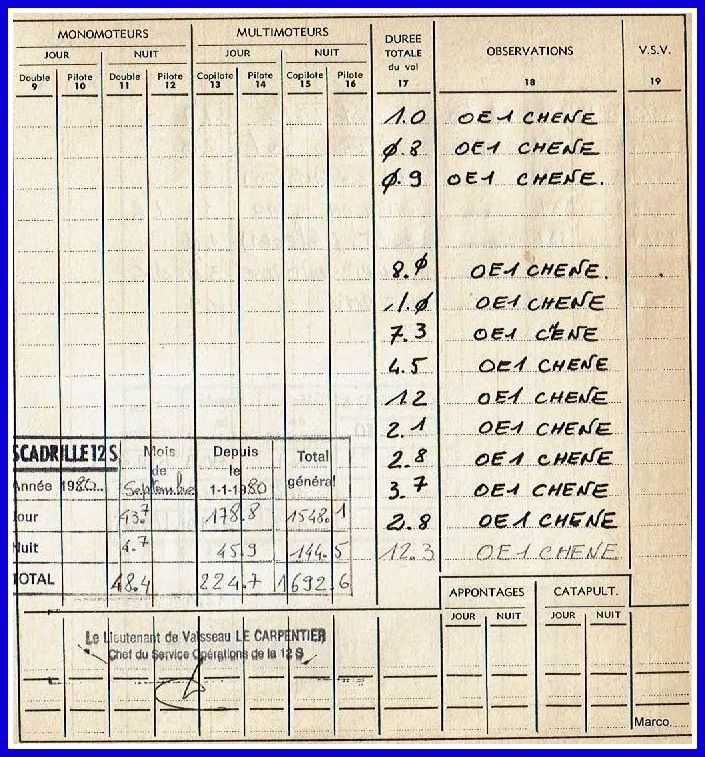 MONOMOTEURS MULTIMOTEURS DUREE TOTALE du vol 17 OBSERVATIONS 18 V.S.V. 19
JOUR NUIT JOUR NUIT
Double Pilote Double Pilote Copilote Pilote Copilote Pilote
9 10 11 12 13 14 15 16
1.0 OE1 CHENE
Ø.8 OE1 CHENE
Ø.9 OE1 CHENE.
8.Ø OE1 CHENE.
1.Ø OE1 CHENE
7.3 OE1 CENE
4.5 OE1 CHENE
12 OE1 CHENE
2.1 OE1 CHENE
2.8 OE1 CHENE
3.7 OE1 CHENE
2.8 OE1 CHENE
12.3 OE1 CHENE
SCADRILLE 12 S Mois de Depuis le Total général
Année 1980 Septembre 1-1-1980
Jour 43.7 178.8 1548.1
Nuit 4.7 45.9 144.5
TOTAL 48.4 224.7 1692.6
APPONTAGES CATAPULT.
JOUR NUIT JOUR NUIT
Le Lieutenant de Vaisseau LE CARPENTIER
Chef du Service Opérations de la 12 S
Marco